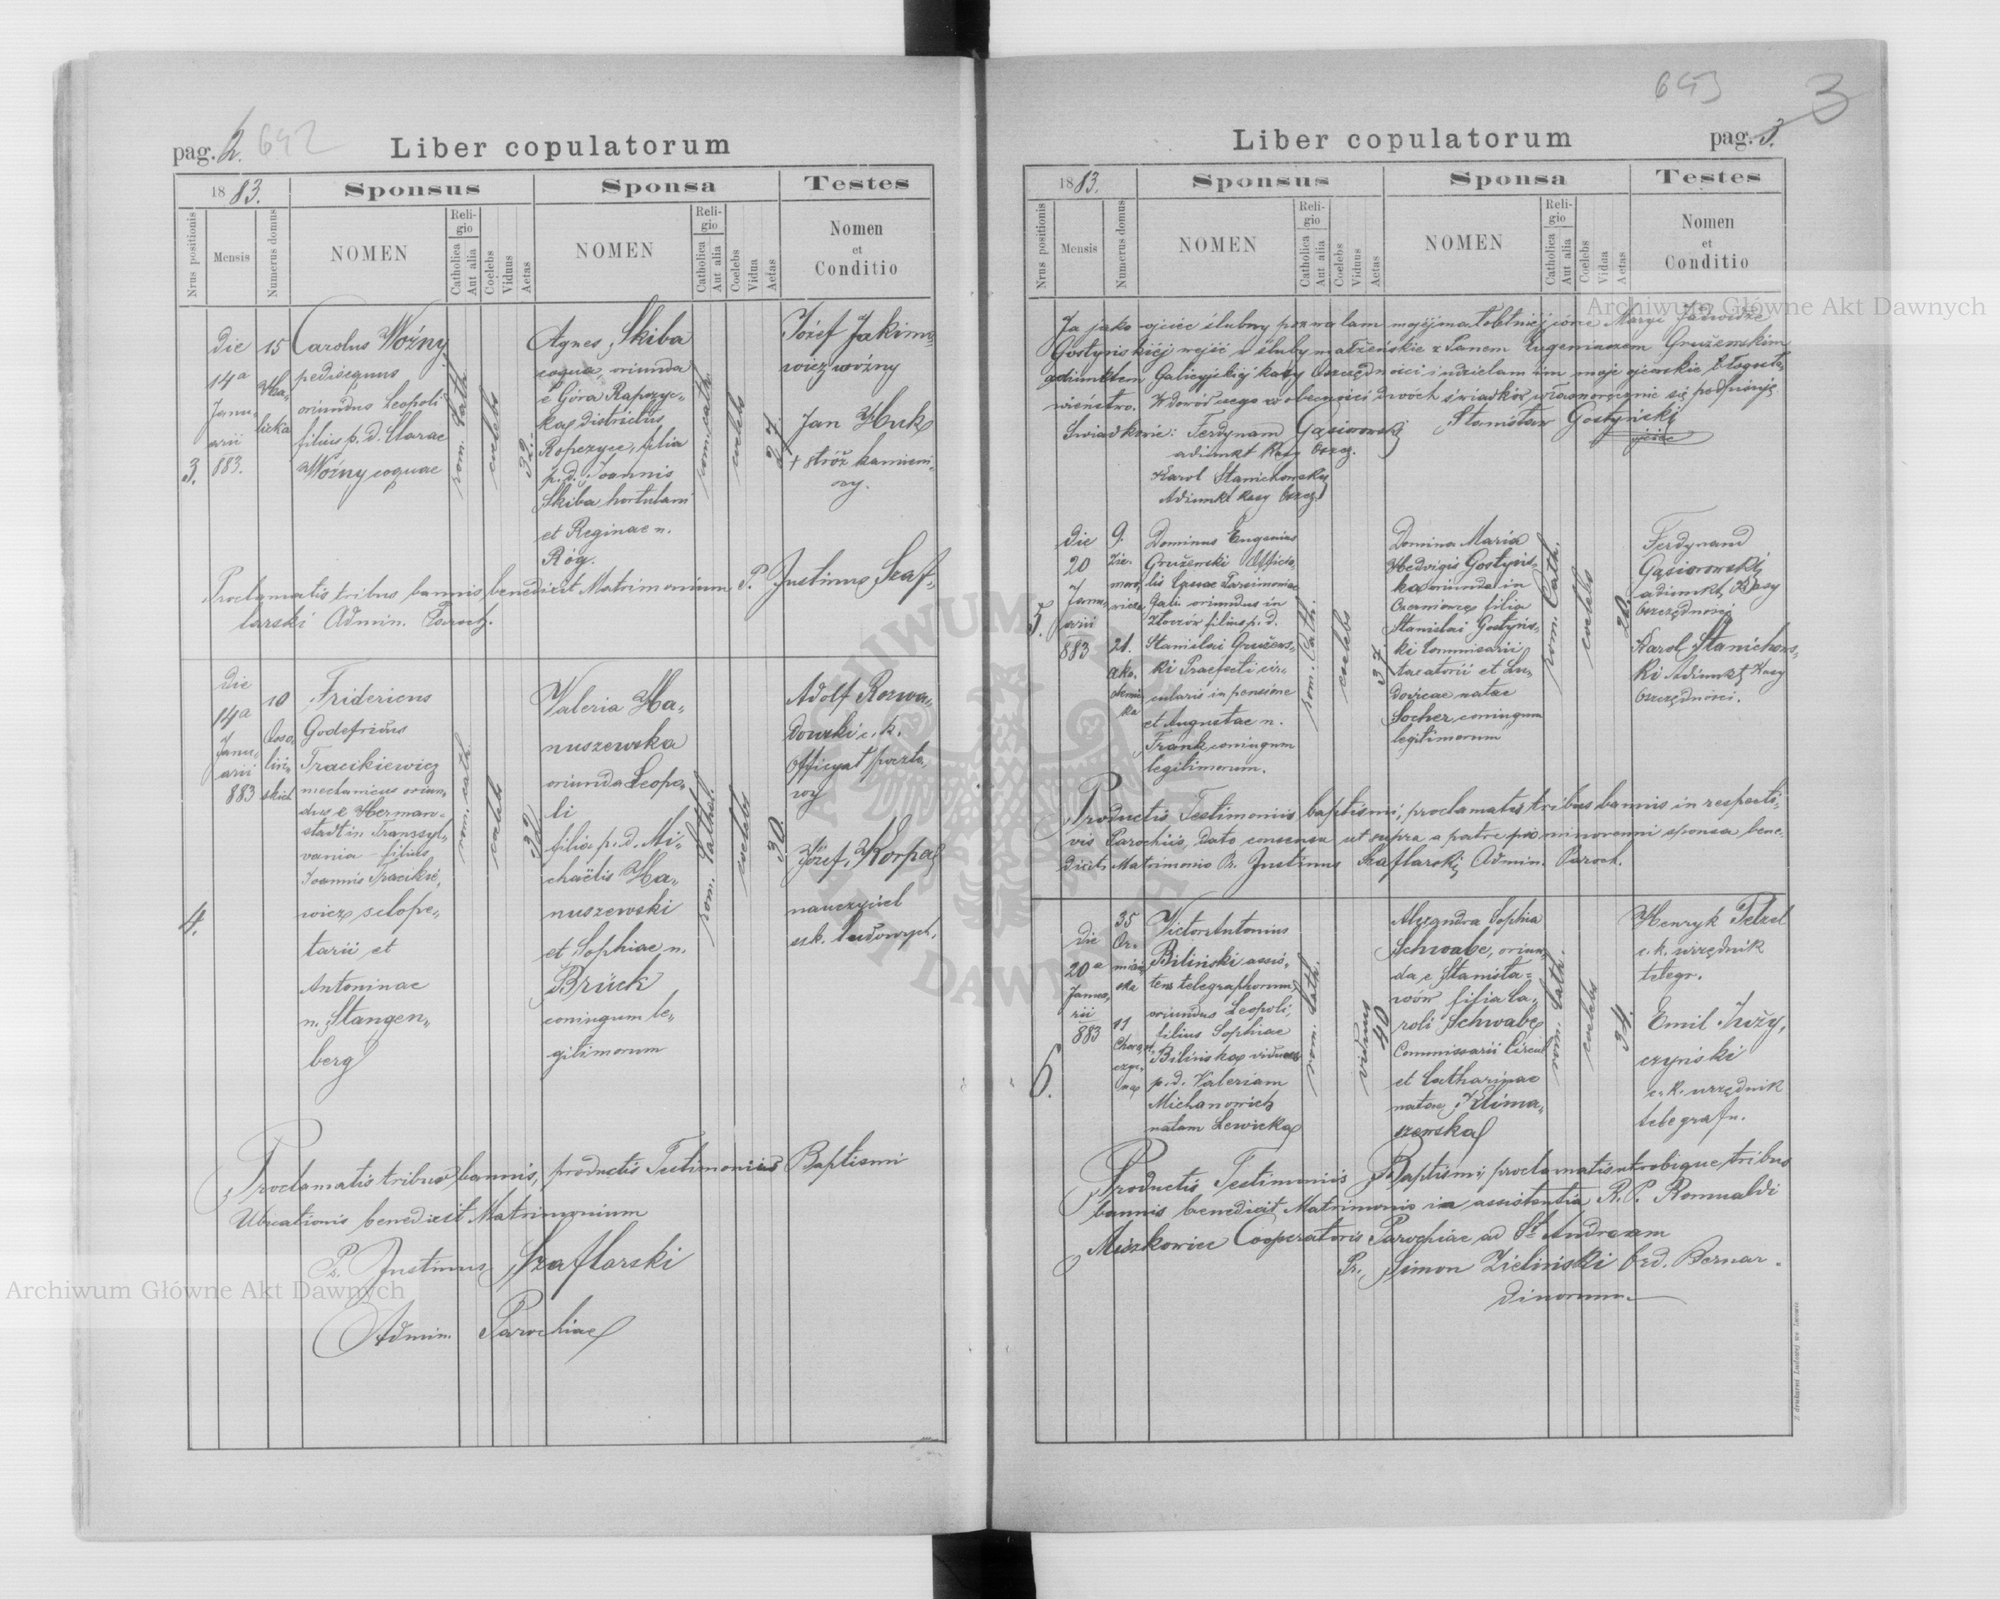 pag. 2. 642
Liber copulatorum
1883.
Sponsus
Sponsa
Testes
Nrus positionis
Mensis
Numerus domus
NOMEN
Religio
Catholica
Aut alia
Coelebs
Viduus
Aetas
NOMEN
Religio
Catholica
Aut alia
Coelebs
Vidua
Aetas
Nomen
et
Conditio
3.
Die
14a
Janu-
arii
883.
15
Ha-
licka
Carolus Woźny
pedisequus
oriundus Leopoli
filius p. d. Clarae
Woźny coquae
rom. cath.
coelebs
32.
Agnes Skiba
coqua, oriunda
e Góra Ropczyc-
ka districtus
Ropczyce, filia
p. d. Joannis
Skiba hortulani
et Reginae n.
Róg.
rom. cath.
coelebs
27.
Józef Jakimo-
wicz woźny
Jan Huk
+ stróż kamieni-
czy.
Proclamatis tribus bannis benedixit Matrimonium P. Justinus Szaf-
larski Admin. Paroch.
4.
Die
14a
Janu-
arii
883
10
Osso-
liń-
skich
Fridericus
Godefridus
Tracikiewicz
mechanicus oriun-
dus e Herman-
stadt in Transsyl-
vania filius
Joannis Tracikie-
wicz sclope-
tarii et
Antoninae
n. Stangen-
berg
rom. cath.
coelebs
32
Valeria Ha-
nuszewska
oriunda Leopo-
li
filia p. d. Mi-
chaëlis Ha-
nuszewski
et Sophiae n.
Brück
coniugum le-
gitimorum
rom. cathol.
coelebs
30.
Adolf Rozwa-
dowski c. k.
Officyał poczto-
wy
Józef Korpal
nauczyciel
szk. ludowych.
Proclamatis tribus bannis, productis Testimoniis Baptismi
Ubicationis benedixit Matrimonium
Pr. Justinus Szaflarski
Admin. Parochiae
643
3
Liber copulatorum
pag. 3.
1883.
Sponsus
Sponsa
Testes
Nrus positionis
Mensis
Numerus domus
NOMEN
Religio
Catholica
Aut alia
Coelebs
Viduus
Aetas
NOMEN
Religio
Catholica
Aut alia
Coelebs
Vidua
Aetas
Nomen
et
Conditio
Ja jako ojciec ślubny pozwalam mojej małoletniej córce Maryi Jadwidze
Gostyńskiéj wejść w śluby małżeńskie z Panem Eugeniuszem Grużewskim
adiunktem Galicyjskiéj kasy Oszczędności i udzielam im moje ojcowskie błogosła-
wieństwo. W dowód czego w obecności dwóch świadków własnoręcznie się podpisuję
Świadkowie: Ferdynand Gąsiorowski Stanisław Gostyński
adiunkt Kasy Oszcz. ojciec
Karol Stanichowski
Adiunkt Kasy Oszcz.
5.
Die
20
Janu-
arii
883
9.
Zie-
moro-
wicza
21.
Aka-
demic-
ka
Dominus Eugenius
Grużewski Officia-
lis Cassae Parsimoniae
Gali. oriundus in
Złoczów filius p. d.
Stanislai Grużews-
ki Praefecti cir-
cularis in pensione
et Augustae n.
Frank coniugum
legitimorum.
rom. Cath.
coelebs
37
Domina Maria
Hedvigis Gostyńs-
ka oriunda in
Czerniowce filia
Stanislai Gostyńs-
ki Commisarii
taxatorii et Lu-
dovicae natae
Socher coniugum
legitimorum
rom. Cath.
coelebs
20.
Ferdynand
Gąsiorowski
adiunkt Kasy
Oszczędności
Karol Stanichows-
ki Adiunkt Kasy
Oszczędności.
Productis Testimoniis baptismi, proclamatis tribus bannis in respecti-
vis Parochiis, dato consensu ut supra a patre pro minorenni sponsa bene-
dixit Matrimonio Pr. Justinus Szaflarski Admin. Paroch.
6.
Die
20a
Janua-
rii
883
35
Or-
miań-
ska
11
Chorąż-
czyz-
na
Victor Antonius
Biliński assis-
tens telegraphorum,
oriundus Leopoli,
filius Sophiae
Bilińska viduae
p. d. Valeriam
Michanowicz
natam Lewicka
rom. Cath.
viduus
40
Alexandra Sophia
Schwabe, oriun-
da e Stanisła-
wów filia Ca-
roli Schwabe
Commissarii Circul.
et Catharinae
natae Klima-
szewska
rom. Cath.
coelebs
34.
Henryk Petzel
c. k. urzędnik
telegr.
Emil Krzy-
czyński
c. k. urzędnik
telegrafu.
Productis Testimoniis Baptismi, proclamatis utrobique tribus
bannis benedixit Matrimonio in assistentia R. P. Romualdi
Miśkowicz Cooperatoris Parochiae ad St. Andream
Pr. Simon Zieliński Ord. Bernar-
dinorum.
Z drukarni Ludowej we Lwowie
Archiwum Główne Akt Dawnych
Archiwum Główne Akt Dawnych